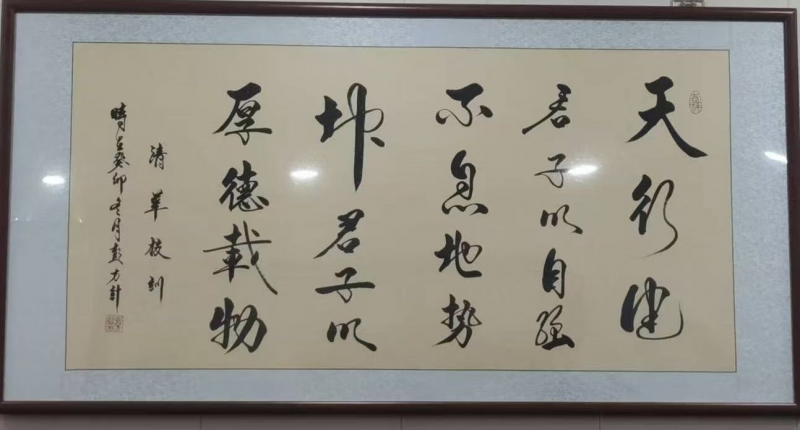 天行健
君子以自强
不息地势
坤君子以
厚德载物
清华校训
时在癸卯冬月彭方針